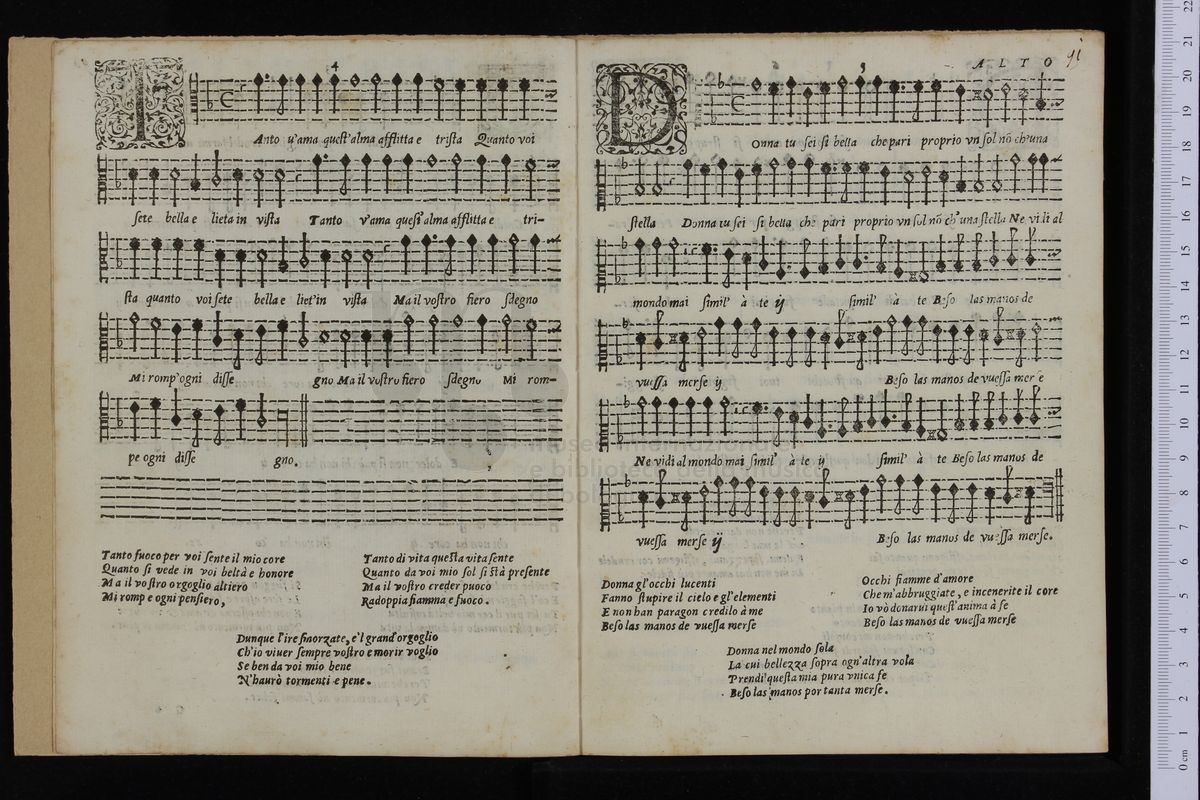 4
T Anto v'ama quest'alma afflitta e trista Quanto voi
sete bella e lieta in vista Tanto v'ama quest'alma afflitta e tri-
sta quanto voi sete bella e liet'in vista Ma il vostro fiero sdegno
Mi romp'ogni disse gno Ma il vostro fiero sdegno Mi rom-
pe ogni disse gno.
Tanto fuoco per voi sente il mio core
Quanto si vede in voi beltà e honore
Ma il vostro orgoglio altiero
Mi romp e ogni pensiero,
Tanto di vita questa vita sente
Quanto da voi mio sol si stà presente
Ma il vostro creder puoco
Radoppia fiamma e fuoco.
Dunque l'ire sinorzate, e'l grand'orgoglio
Ch'io viuer sempre vostro e morir voglio
Se ben da voi mio bene
N'haurò tormenti e pene.
5
ALTO
91
D Onna tu sei si bella che pari proprio vn sol nõ ch'una
stella Donna tu sei si bella che pari proprio vn sol nõ ch'una stella Ne vi li al
mondo mai simil' à te ij simil' à te Beso las manos de
vuessa merse ij Beso las manos de vuessa mer e
Ne vidi al mondo mai simil' à te ij simil' à te Beso las manos de
vuessa merse ij Beso las manos de vuessa merse.
Donna gl'occhi lucenti
Fanno stupire il cielo e gl'elementi
E non han paragon credilo à me
Beso las manos de vuessa merse
Occhi fiamme d'amore
Che m'abbruggiate, e incenerite il core
Io vò donarui quest'anima à fe
Beso las manos de vuessa merse
Donna nel mondo sola
La cui bellezza sopra ogn'altra vola
Prendi questa mia pura vnica fe
Beso las manos por tanta merse.